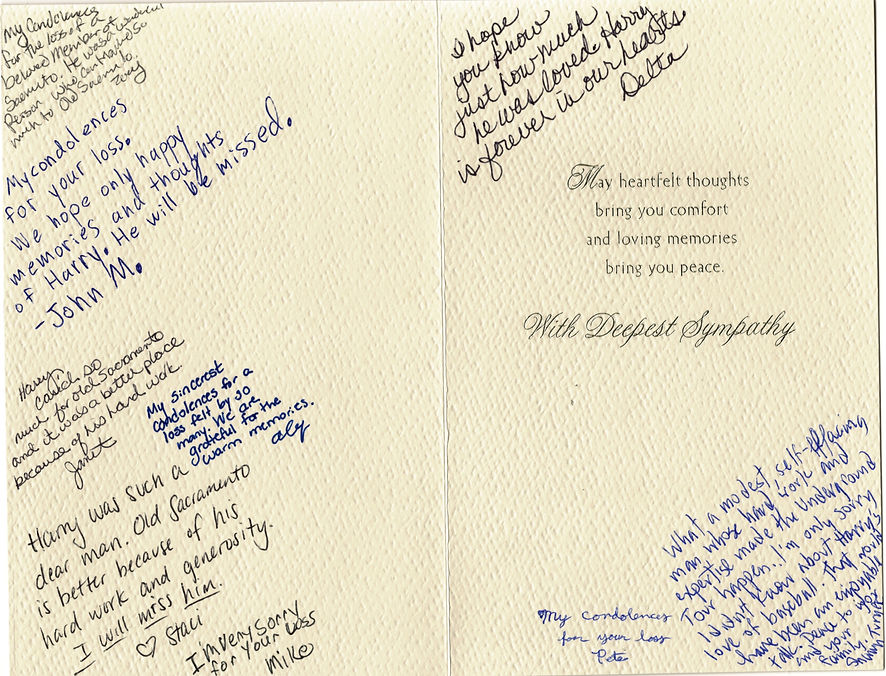 My Condolences
for the loss of a
beloved Member of
Sacramento. He was a wonderful
Person who contributed so
much to Old Sacramento.
My condolences
for your loss.
We hope only happy
memories and thoughts
of Harry. He will be missed.
-John M.
Harry
cared so
much for Old Sacramento
and it was a better place
because of his hard work.
Janet
My sincerest
condolences for a
loss felt by so
many. We are
grateful for the
warm memories.
aly
Harry was such a
dear man. Old Sacramento
is better because of his
hard work and generosity.
I will miss him.
♡ Staci
I'm very sorry
for your loss
Mike
I hope
you know
just how much
he was loved. Harry
is forever in our hearts.
Delta
May heartfelt thoughts
bring you comfort
and loving memories
bring you peace.
With Deepest Sympathy
What a modest, self-effacing
man whose hard work and
expertise made the Underground
Tour happen... I'm only sorry
I didn't know about Harry's
love of baseball. That would
have been an enjoyable
talk. Peace to you
and your
family.
My condolences
for your loss
Pete